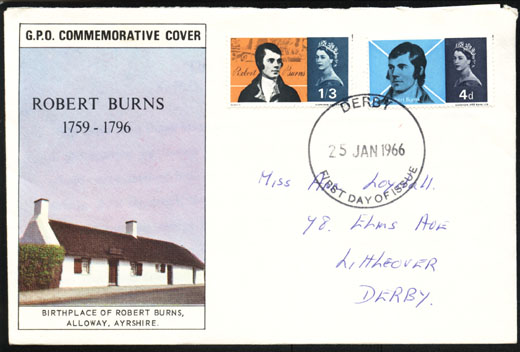 G.P.O. COMMEMORATIVE COVER
ROBERT BURNS
1759 - 1796
BIRTHPLACE OF ROBERT BURNS,
ALLOWAY, AYRSHIRE.
Robert Burns
1/3
4d
DERBY
25 JAN 1966
FIRST DAY OF ISSUE
Miss
98. Elms Ave
Littleover
DERBY.